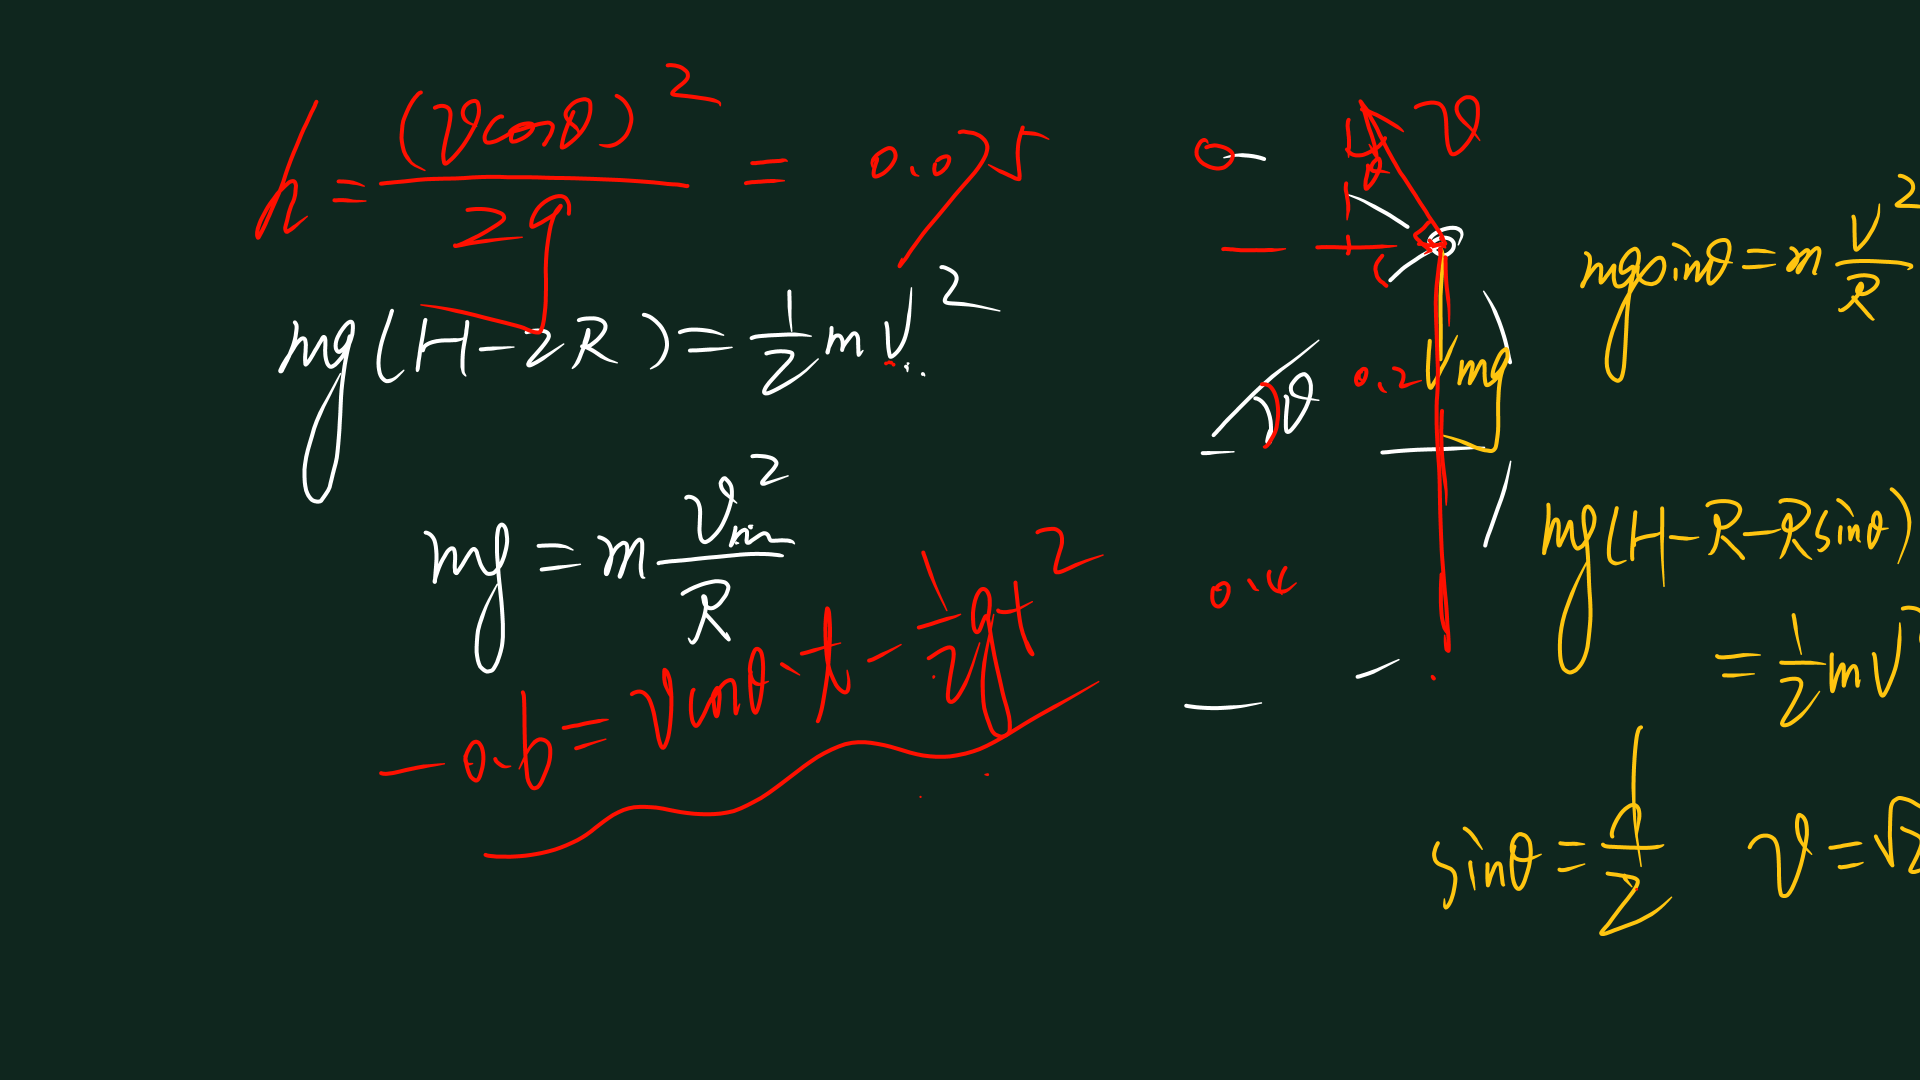 h = (vcosθ)² / 2g = 0.075
mg(H-2R) = 1/2 mv²
mg = m vm² / R
-0.6 = vcosθ·t - 1/2 gt²
v
θ
θ
0.2
mg
0.4
mgsinθ = m v² / R
mg(H-R-Rsinθ)
= 1/2 mv
sinθ = 1/2 v = √